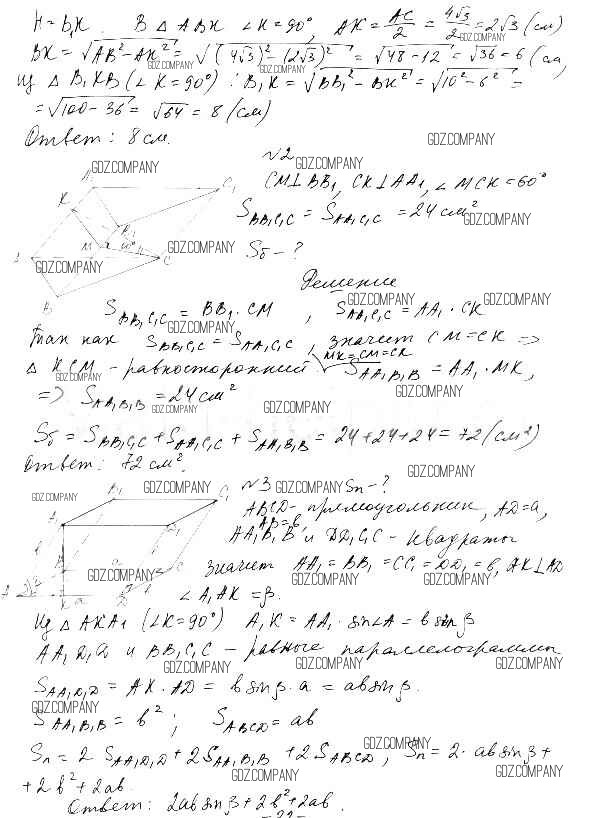 H = B₁K. В △ ABK ∠K = 90°, AK = AC/2 = 4√3/2 = 2√3 (см)
BK = √(AB² - AK²) = √((4√3)² - (2√3)²) = √(48 - 12) = √36 = 6 (см),
из △ B₁KB (∠K = 90°): B₁K = √(BB₁² - BK²) = √(10² - 6²) =
= √(100 - 36) = √64 = 8 (см)
Ответ: 8 см.
GDZ.COMPANY
№2
CM⊥BB₁, CK⊥AA₁, ∠MCK = 60°
S BB₁C₁C = S AA₁C₁C = 24 см²
Sб - ?
Решение
S BB₁C₁C = BB₁ · CM, S AA₁C₁C = AA₁ · CK
Так как S BB₁C₁C = S AA₁C₁C, значит CM = CK =>
△ KCM - равносторонний MK=CM=CK S AA₁B₁B = AA₁ · MK,
=> S AA₁B₁B = 24 см²
Sб = S BB₁C₁C + S AA₁C₁C + S AA₁B₁B = 24 + 24 + 24 = 72 (см²)
Ответ: 72 см².
№3 Sп - ?
ABCD - прямоугольник, AD = a,
AB = в,
AA₁B₁B и DD₁C₁C - квадраты
значит AA₁ = BB₁ = CC₁ = DD₁ = в, AK⊥AD
∠A₁AK = β.
Из △ AKA₁ (∠K = 90°) A₁K = AA₁ · sin∠A = в sin β
AA₁D₁D и BB₁C₁C - равные параллелограммы
S AA₁D₁D = AK · AD = в sin β · a = aв sin β.
S AA₁B₁B = в²; S ABCD = aв
Sп = 2 S AA₁D₁D + 2 S AA₁B₁B + 2 S ABCD, Sп = 2 · aв sin β +
+ 2в² + 2aв.
Ответ: 2aв sin β + 2в² + 2aв.